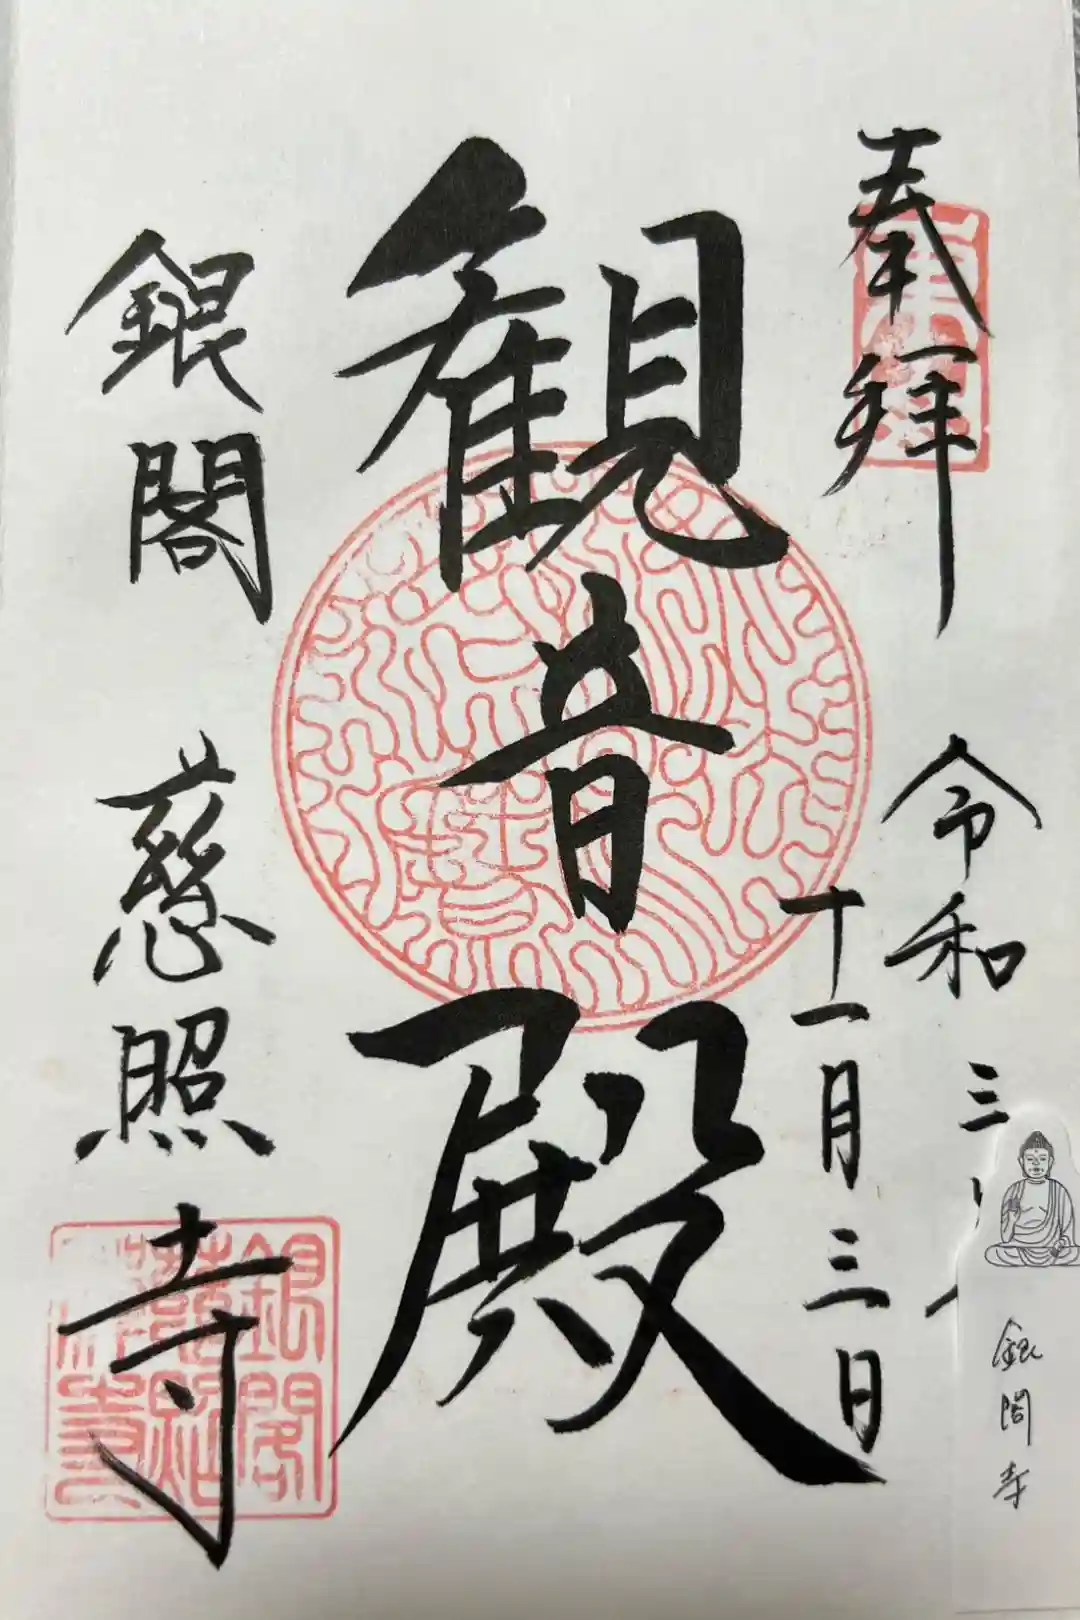 奉拝
令和三
十一月三日
観音殿
銀閣 慈照寺
銀閣慈照寺
銀閣寺